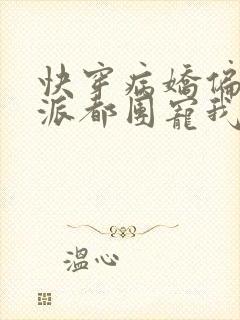 快穿病嬌偏
派都團寵我
溫心